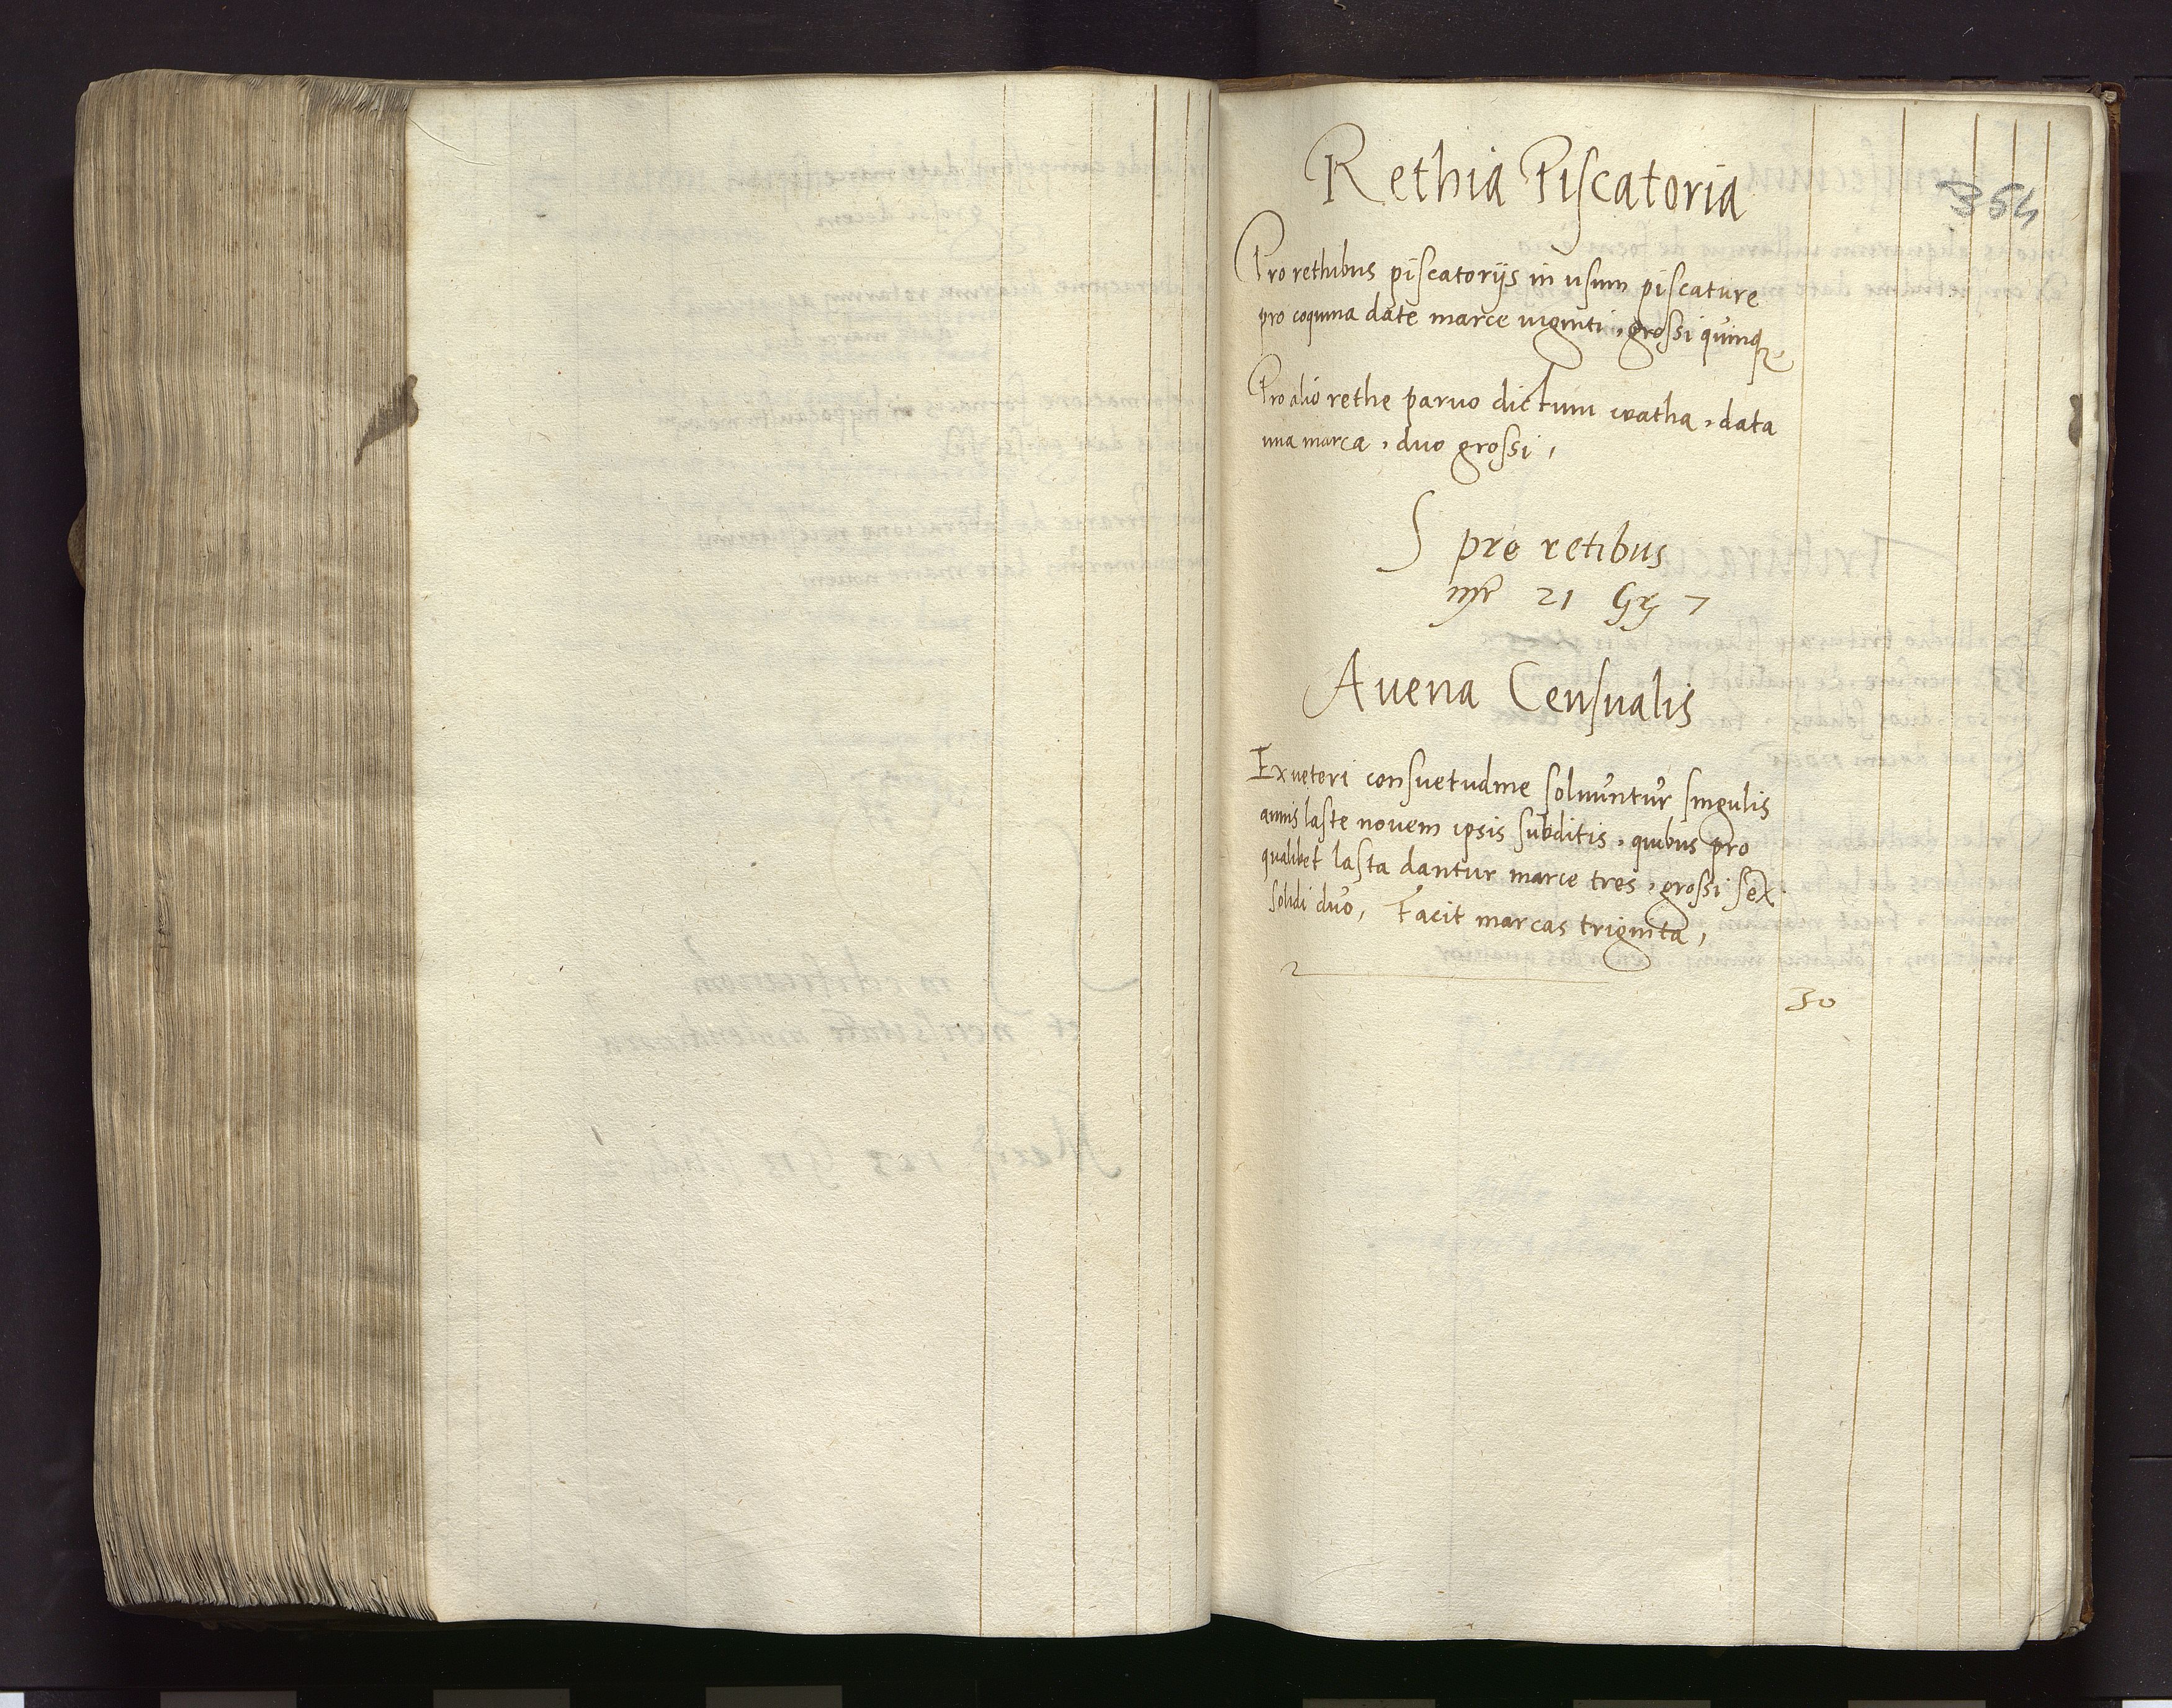 Rethia Piscatoria
364
Pro rethibus piscatorijs in usum piscature
pro coquina date marce viginti, grossi quinq3
Pro alio rethe paruo dictum watha, data
una marca, duo grossi,
S pro retibus
mr 21 Gr 7
Auena Censualis
Ex ueteri consuetudine soluuntur singulis
annis laste nouem ipsis subditis, quibus pro
qualibet lasta dantur marce tres, grossi sex
solidi duo, Facit marcas triginta,
30